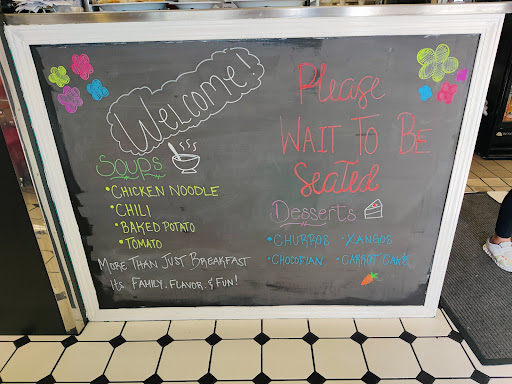 Welcome!
Soups
• Chicken Noodle
• Chili
• Baked Potato
• Tomato
More Than Just Breakfast
It's Family, Flavor, & Fun!
Please
Wait To Be
Seated
Desserts
• Churros • Xangos
• Chocofian • Carrot Cake